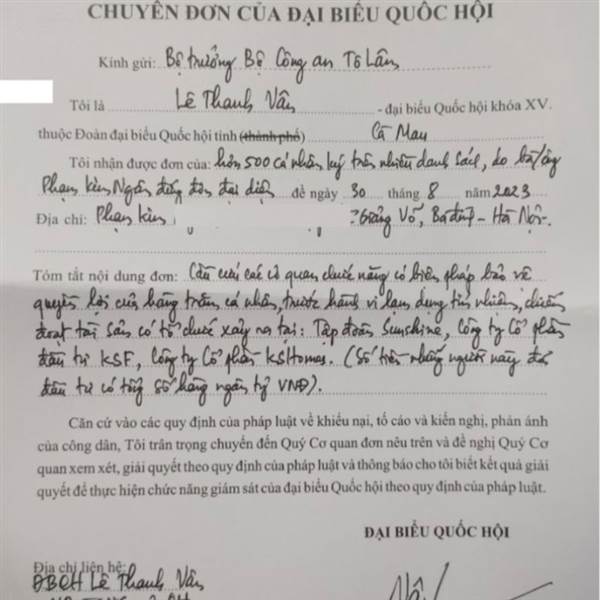 CHUYỂN ĐƠN CỦA ĐẠI BIỂU QUỐC HỘI
Kính gửi: Bộ trưởng Bộ Công an Tô Lâm
Tôi là Lê Thanh Vân - đại biểu Quốc hội khóa XV.
thuộc Đoàn đại biểu Quốc hội tỉnh (thành phố) Cà Mau
Tôi nhận được đơn của: hơn 500 cá nhân ký trên nhiều danh sách, do bà/ông
Phạm Kim Ngân đứng đơn đại diện đề ngày 30 tháng 8 năm 2023
Địa chỉ: Phạm Kim Giảng Võ, Ba Đình - Hà Nội.
Tóm tắt nội dung đơn: Cầu cứu các cơ quan chức năng có biện pháp bảo vệ
quyền lợi của hàng trăm cá nhân, trước hành vi lạm dụng tín nhiệm, chiếm
đoạt tài sản có tổ chức xảy ra tại: Tập đoàn Sunshine, Công ty Cổ phần
đầu tư KSF, Công ty Cổ phần KSHomes. (Số tiền những người này đã
đầu tư có tổng số hàng ngàn tỷ VNĐ).
Căn cứ vào các quy định của pháp luật về khiếu nại, tố cáo và kiến nghị, phản ánh
của công dân, Tôi trân trọng chuyển đến Quý Cơ quan đơn nêu trên và đề nghị Quý Cơ
quan xem xét, giải quyết theo quy định của pháp luật và thông báo cho tôi biết kết quả giải
quyết để thực hiện chức năng giám sát của đại biểu Quốc hội theo quy định của pháp luật.
ĐẠI BIỂU QUỐC HỘI
Địa chỉ liên hệ:
ĐBQH Lê Thanh Vân